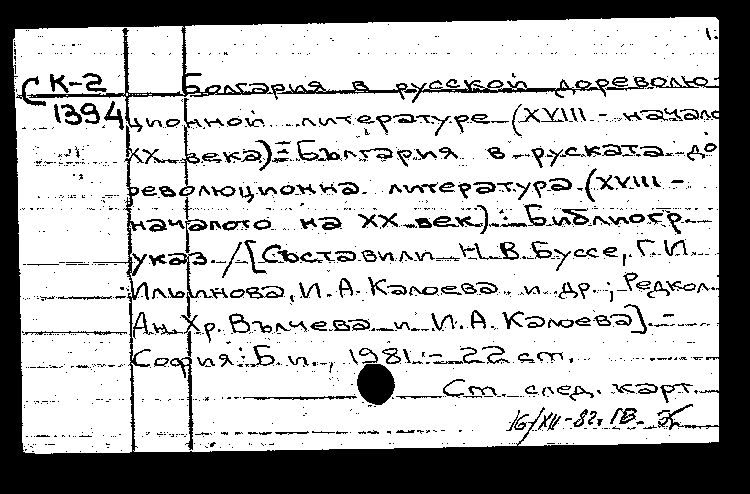 1.
С К-2
1394
Болгария в русской дореволю-
ционной литературе (XVIII - начало
XX века) = България в руската до
революционна литература (XVIII -
началото на XX век) : Библиогр.
указ. / [Съставили Н. В. Буссе, Г. И.
Ильинова, И. А. Калоева и др.; Редкол.
Ан. Хр. Вълчева и И. А. Калоева]. -
София: Б. и., 1981. - 22 cm.
Ст. след. карт.
16/XII-82г. ГВ.